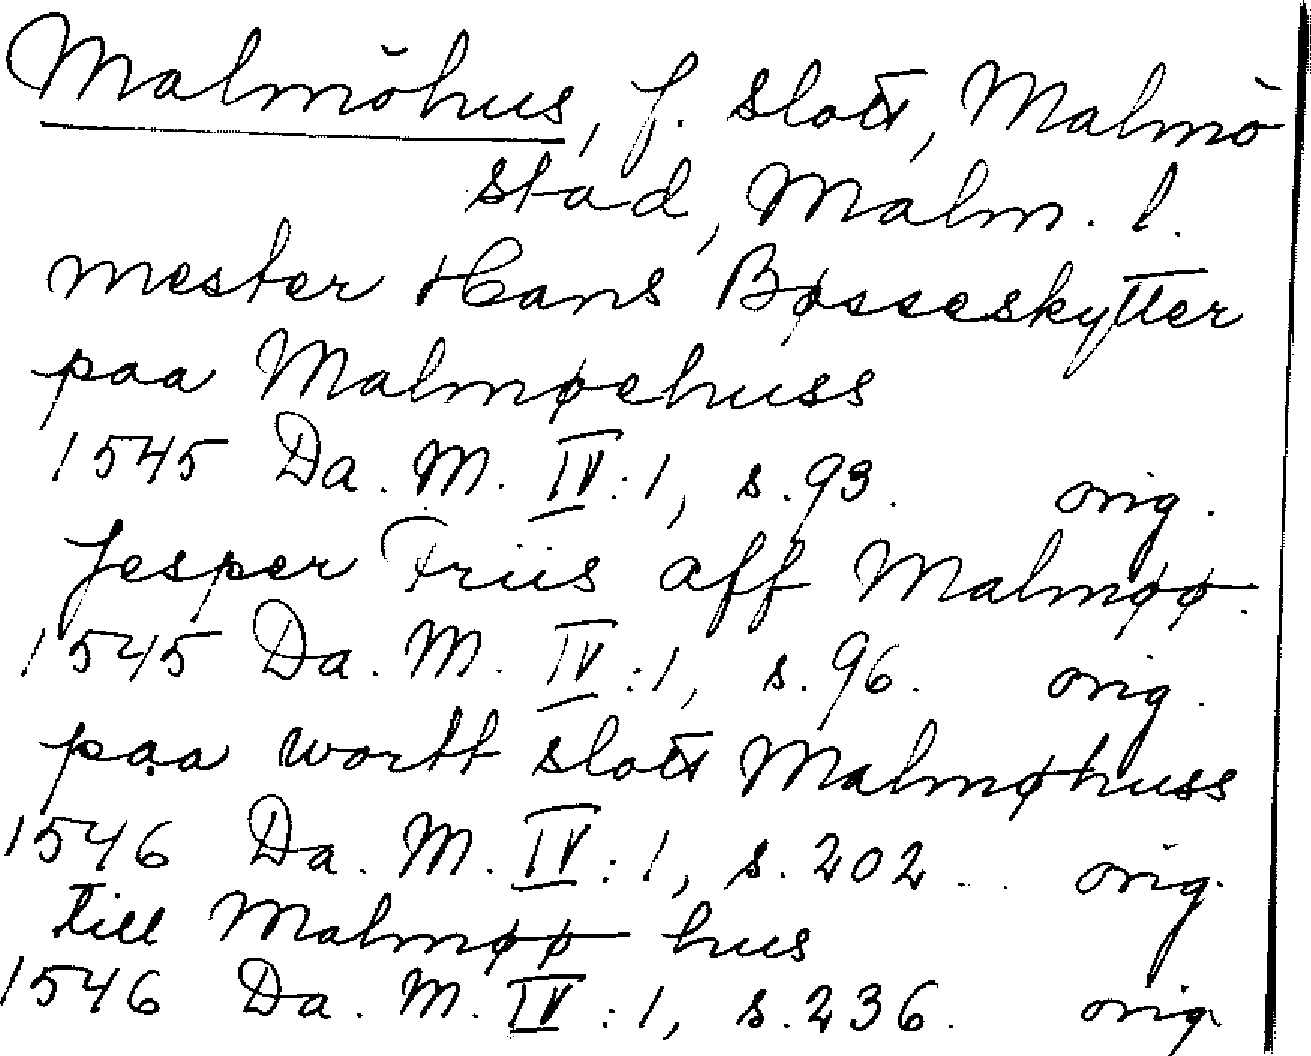 Malmöhus, f. slott, Malmö
stad, Malm. l.
mester Hans Bøsseskytter
paa Malmøehuss
1545 Da. M. IV:1, s. 93. orig.
Jesper Friis aff Malmøø.
1545 Da. M. IV:1, s. 96. orig.
paa wortt slott Malmøhuss
1546 Da. M. IV:1, s. 202. orig.
till Malmøø hus
1546 Da. M. IV:1, s. 236. orig.